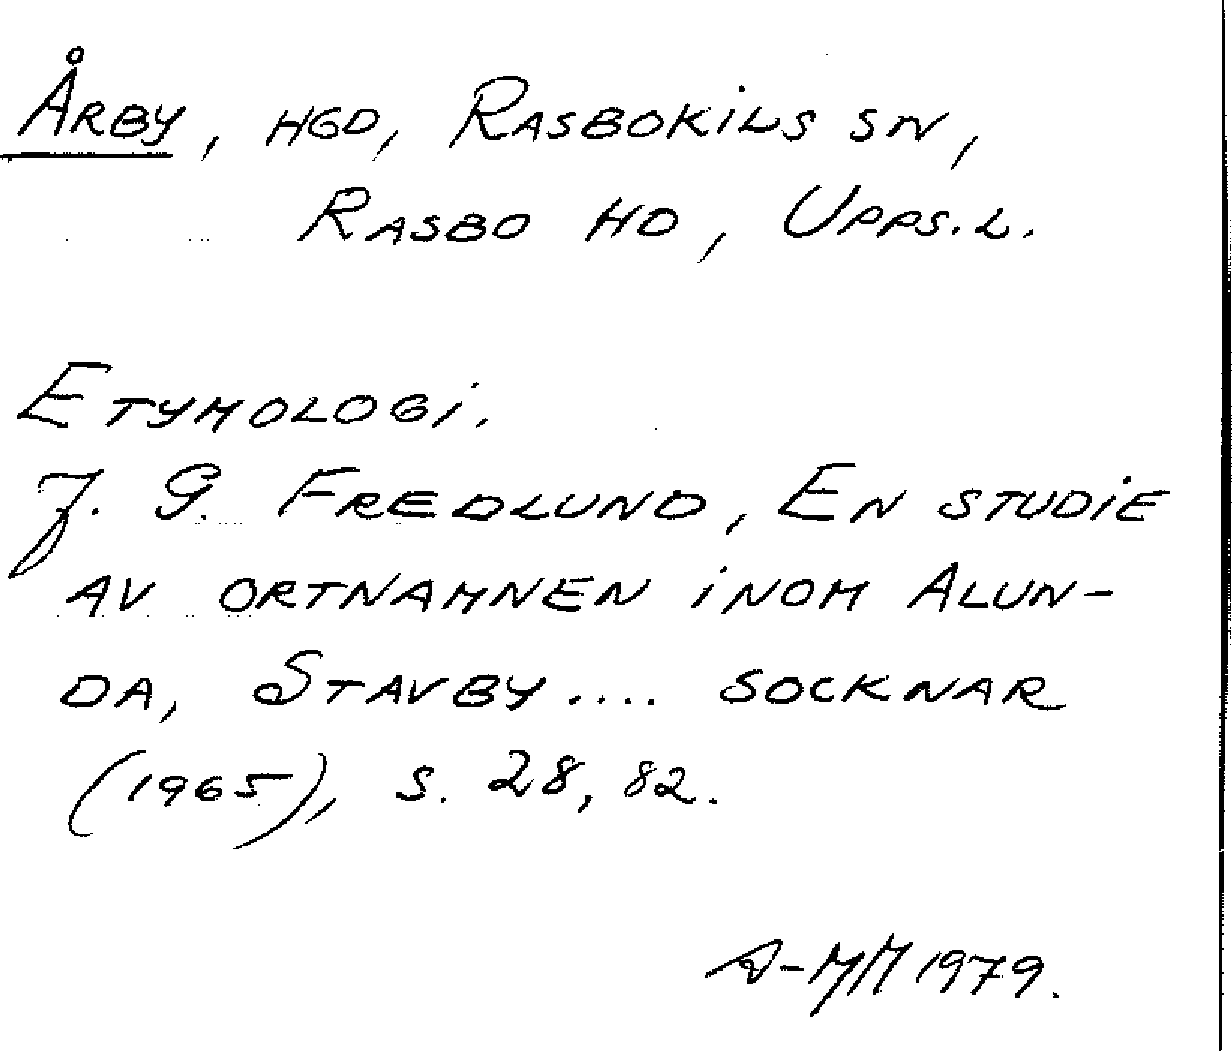 Årby, hgd, Rasbokils sn,
Rasbo hd, Upps.l.
Etymologi.
J. G. Fredlund, En studie
av ortnamnen inom Alun-
da, Stavby.... socknar
(1965), s. 28, 82.
A-MM 1979.